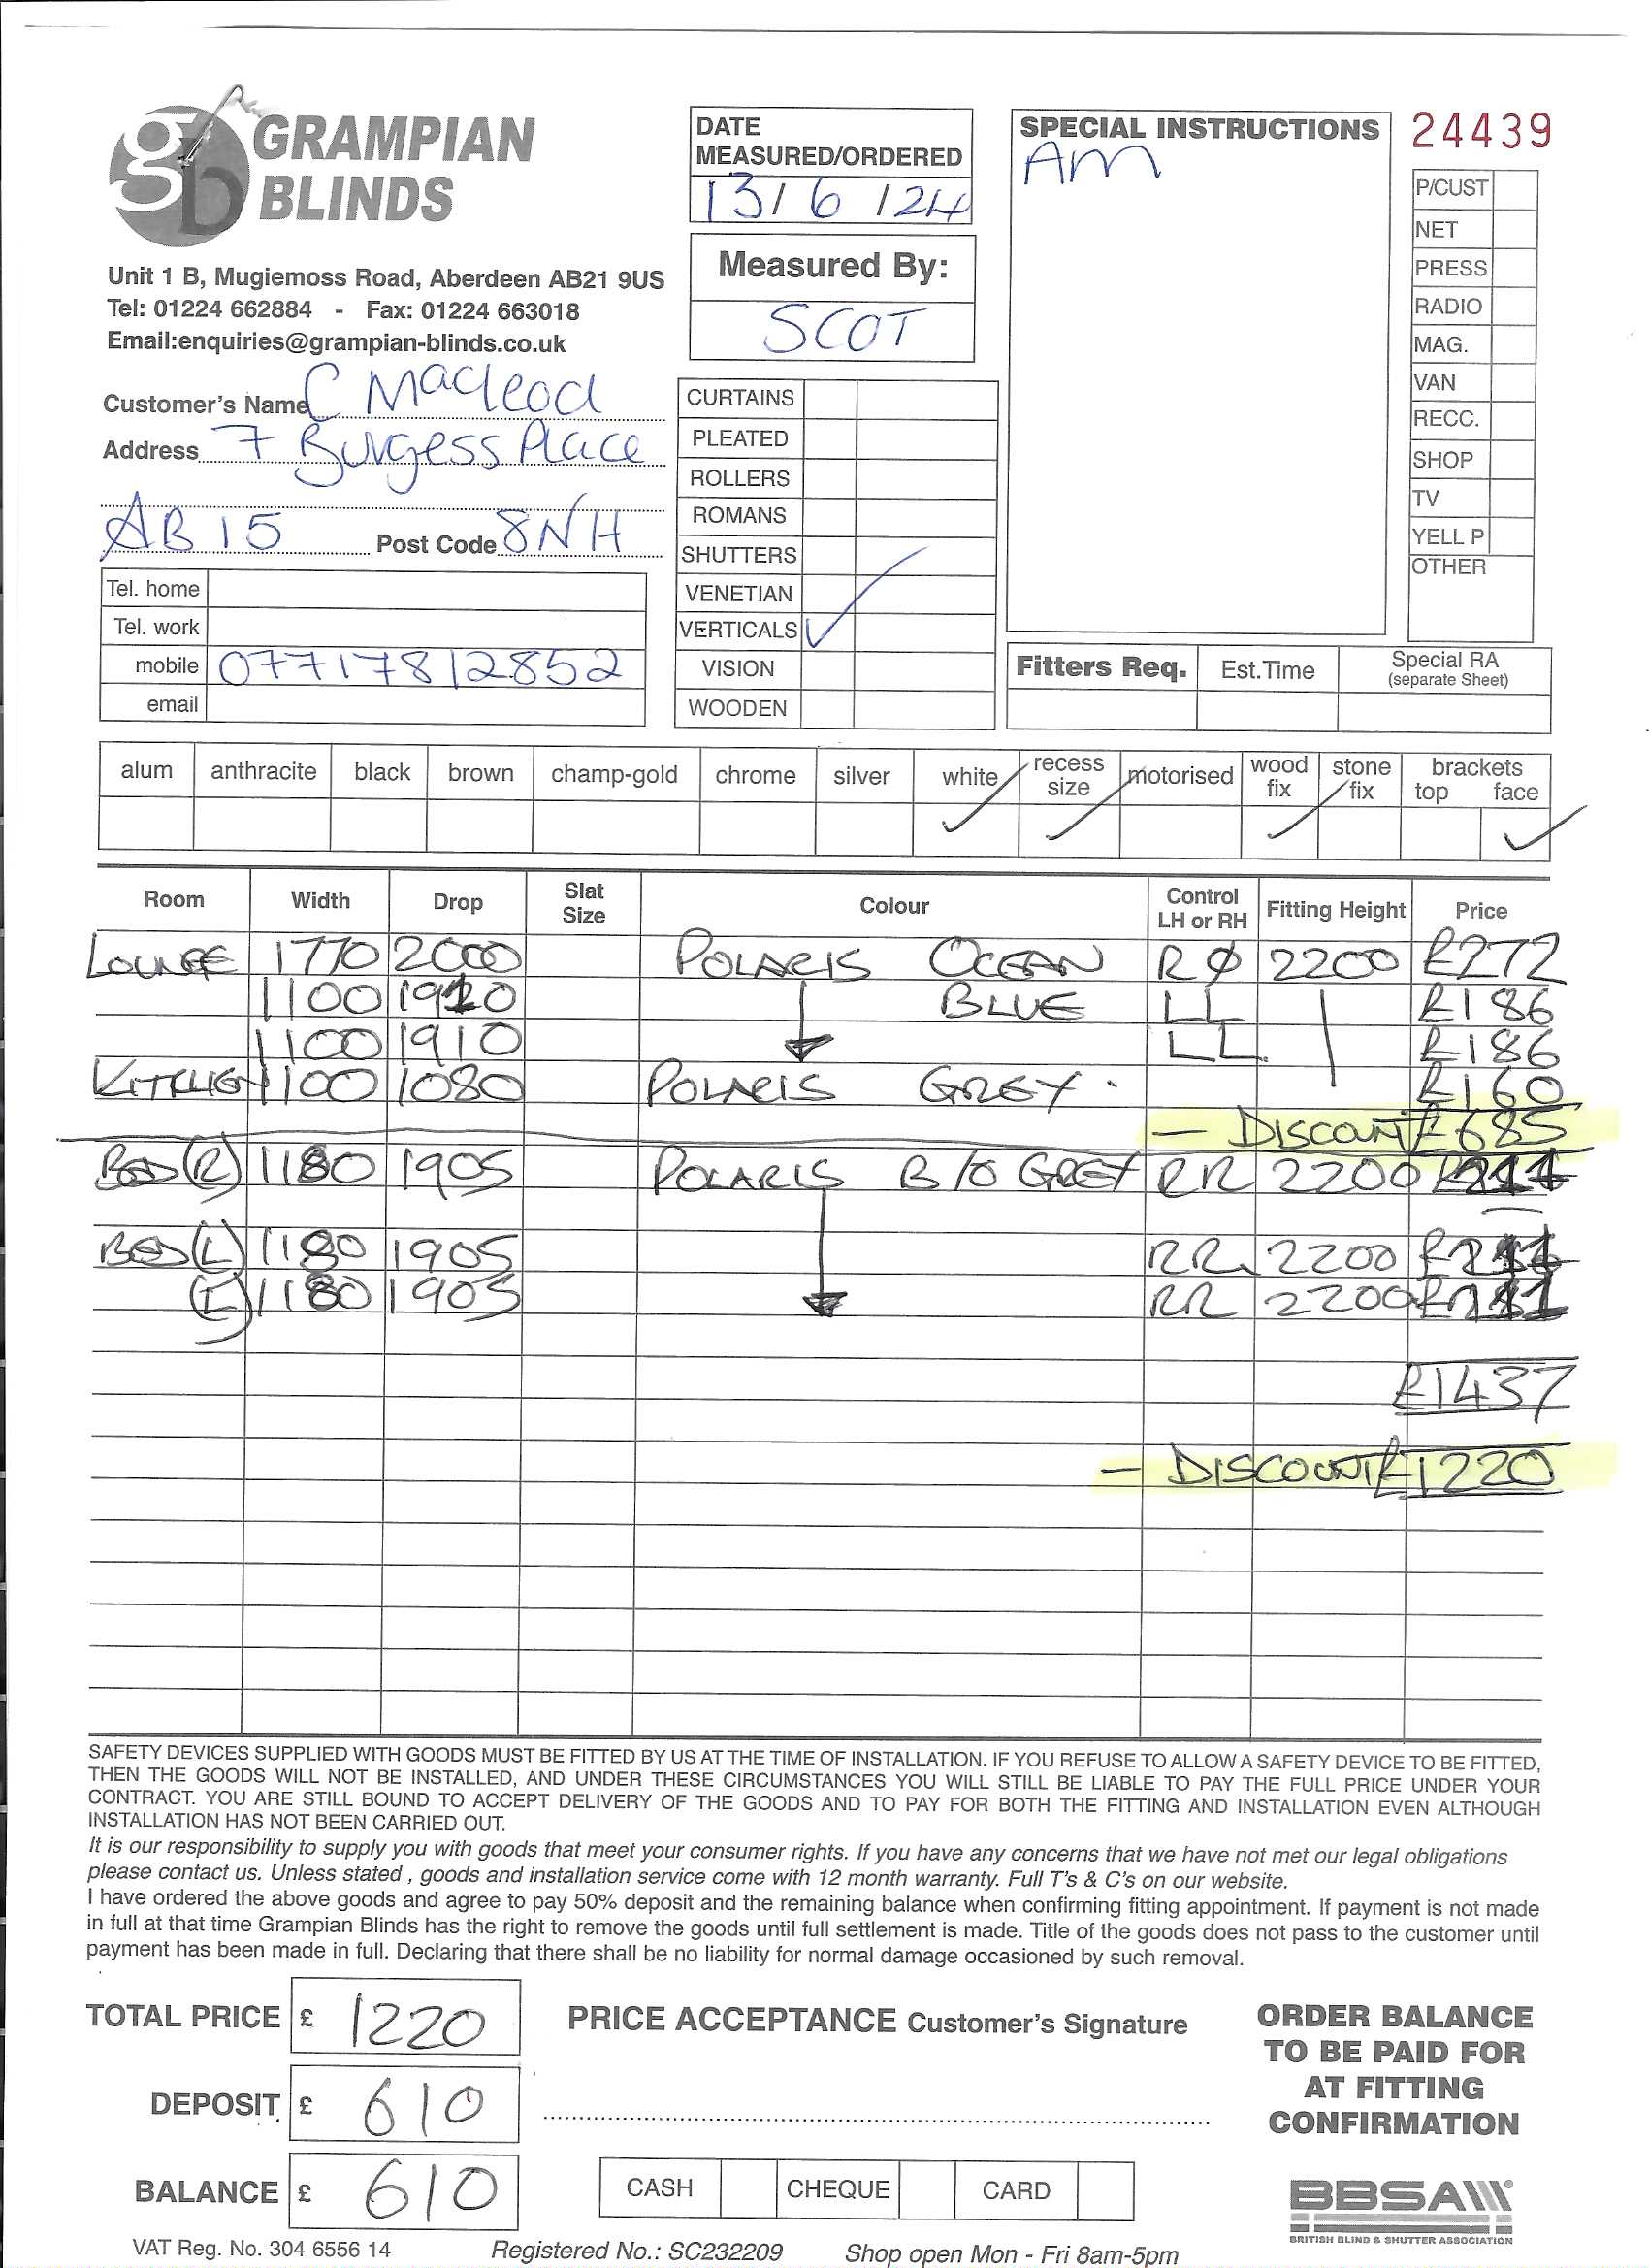 gb GRAMPIAN
BLINDS
Unit 1 B, Mugiemoss Road, Aberdeen AB21 9US
Tel: 01224 662884 - Fax: 01224 663018
Email:enquiries@grampian-blinds.co.uk
DATE
MEASURED/ORDERED
13/6/24
Measured By:
SCOT
SPECIAL INSTRUCTIONS
AM
24439
P/CUST
NET
PRESS
RADIO
MAG.
VAN
RECC.
SHOP
TV
YELL P
OTHER
Customer's Name C Macleod
Address 7 Burgess Place
AB15 Post Code 8NH
Tel. home
Tel. work
mobile 07717812852
email
CURTAINS
PLEATED
ROLLERS
ROMANS
SHUTTERS
VENETIAN
VERTICALS ✓
VISION
WOODEN
Fitters Req. Est.Time Special RA
(separate Sheet)
alum anthracite black brown champ-gold chrome silver white recess size motorised wood fix stone fix brackets top face
✓ ✓ ✓ ✓
Room Width Drop Slat Size Colour Control LH or RH Fitting Height Price
LOUNGE 1770 2000 POLARIS OCEAN R 2200 £272
1100 BLUE LL £186
1100 1910 LL £186
KITCHEN 1100 1080 POLARIS GREY £160
- DISCOUNT £685
BED (R) 1180 1905 POLARIS B/O GREY RR 2200
BED (L) 1180 1905 RR 2200
1180 1905 RR 2200
£1437
- DISCOUNT £1220
SAFETY DEVICES SUPPLIED WITH GOODS MUST BE FITTED BY US AT THE TIME OF INSTALLATION. IF YOU REFUSE TO ALLOW A SAFETY DEVICE TO BE FITTED,
THEN THE GOODS WILL NOT BE INSTALLED, AND UNDER THESE CIRCUMSTANCES YOU WILL STILL BE LIABLE TO PAY THE FULL PRICE UNDER YOUR
CONTRACT. YOU ARE STILL BOUND TO ACCEPT DELIVERY OF THE GOODS AND TO PAY FOR BOTH THE FITTING AND INSTALLATION EVEN ALTHOUGH
INSTALLATION HAS NOT BEEN CARRIED OUT.
It is our responsibility to supply you with goods that meet your consumer rights. If you have any concerns that we have not met our legal obligations
please contact us. Unless stated , goods and installation service come with 12 month warranty. Full T's & C's on our website.
I have ordered the above goods and agree to pay 50% deposit and the remaining balance when confirming fitting appointment. If payment is not made
in full at that time Grampian Blinds has the right to remove the goods until full settlement is made. Title of the goods does not pass to the customer until
payment has been made in full. Declaring that there shall be no liability for normal damage occasioned by such removal.
TOTAL PRICE £ 1220
DEPOSIT £ 610
BALANCE £ 610
PRICE ACCEPTANCE Customer's Signature
CASH CHEQUE CARD
ORDER BALANCE
TO BE PAID FOR
AT FITTING
CONFIRMATION
BBSA
BRITISH BLIND & SHUTTER ASSOCIATION
VAT Reg. No. 304 6556 14 Registered No.: SC232209 Shop open Mon - Fri 8am-5pm